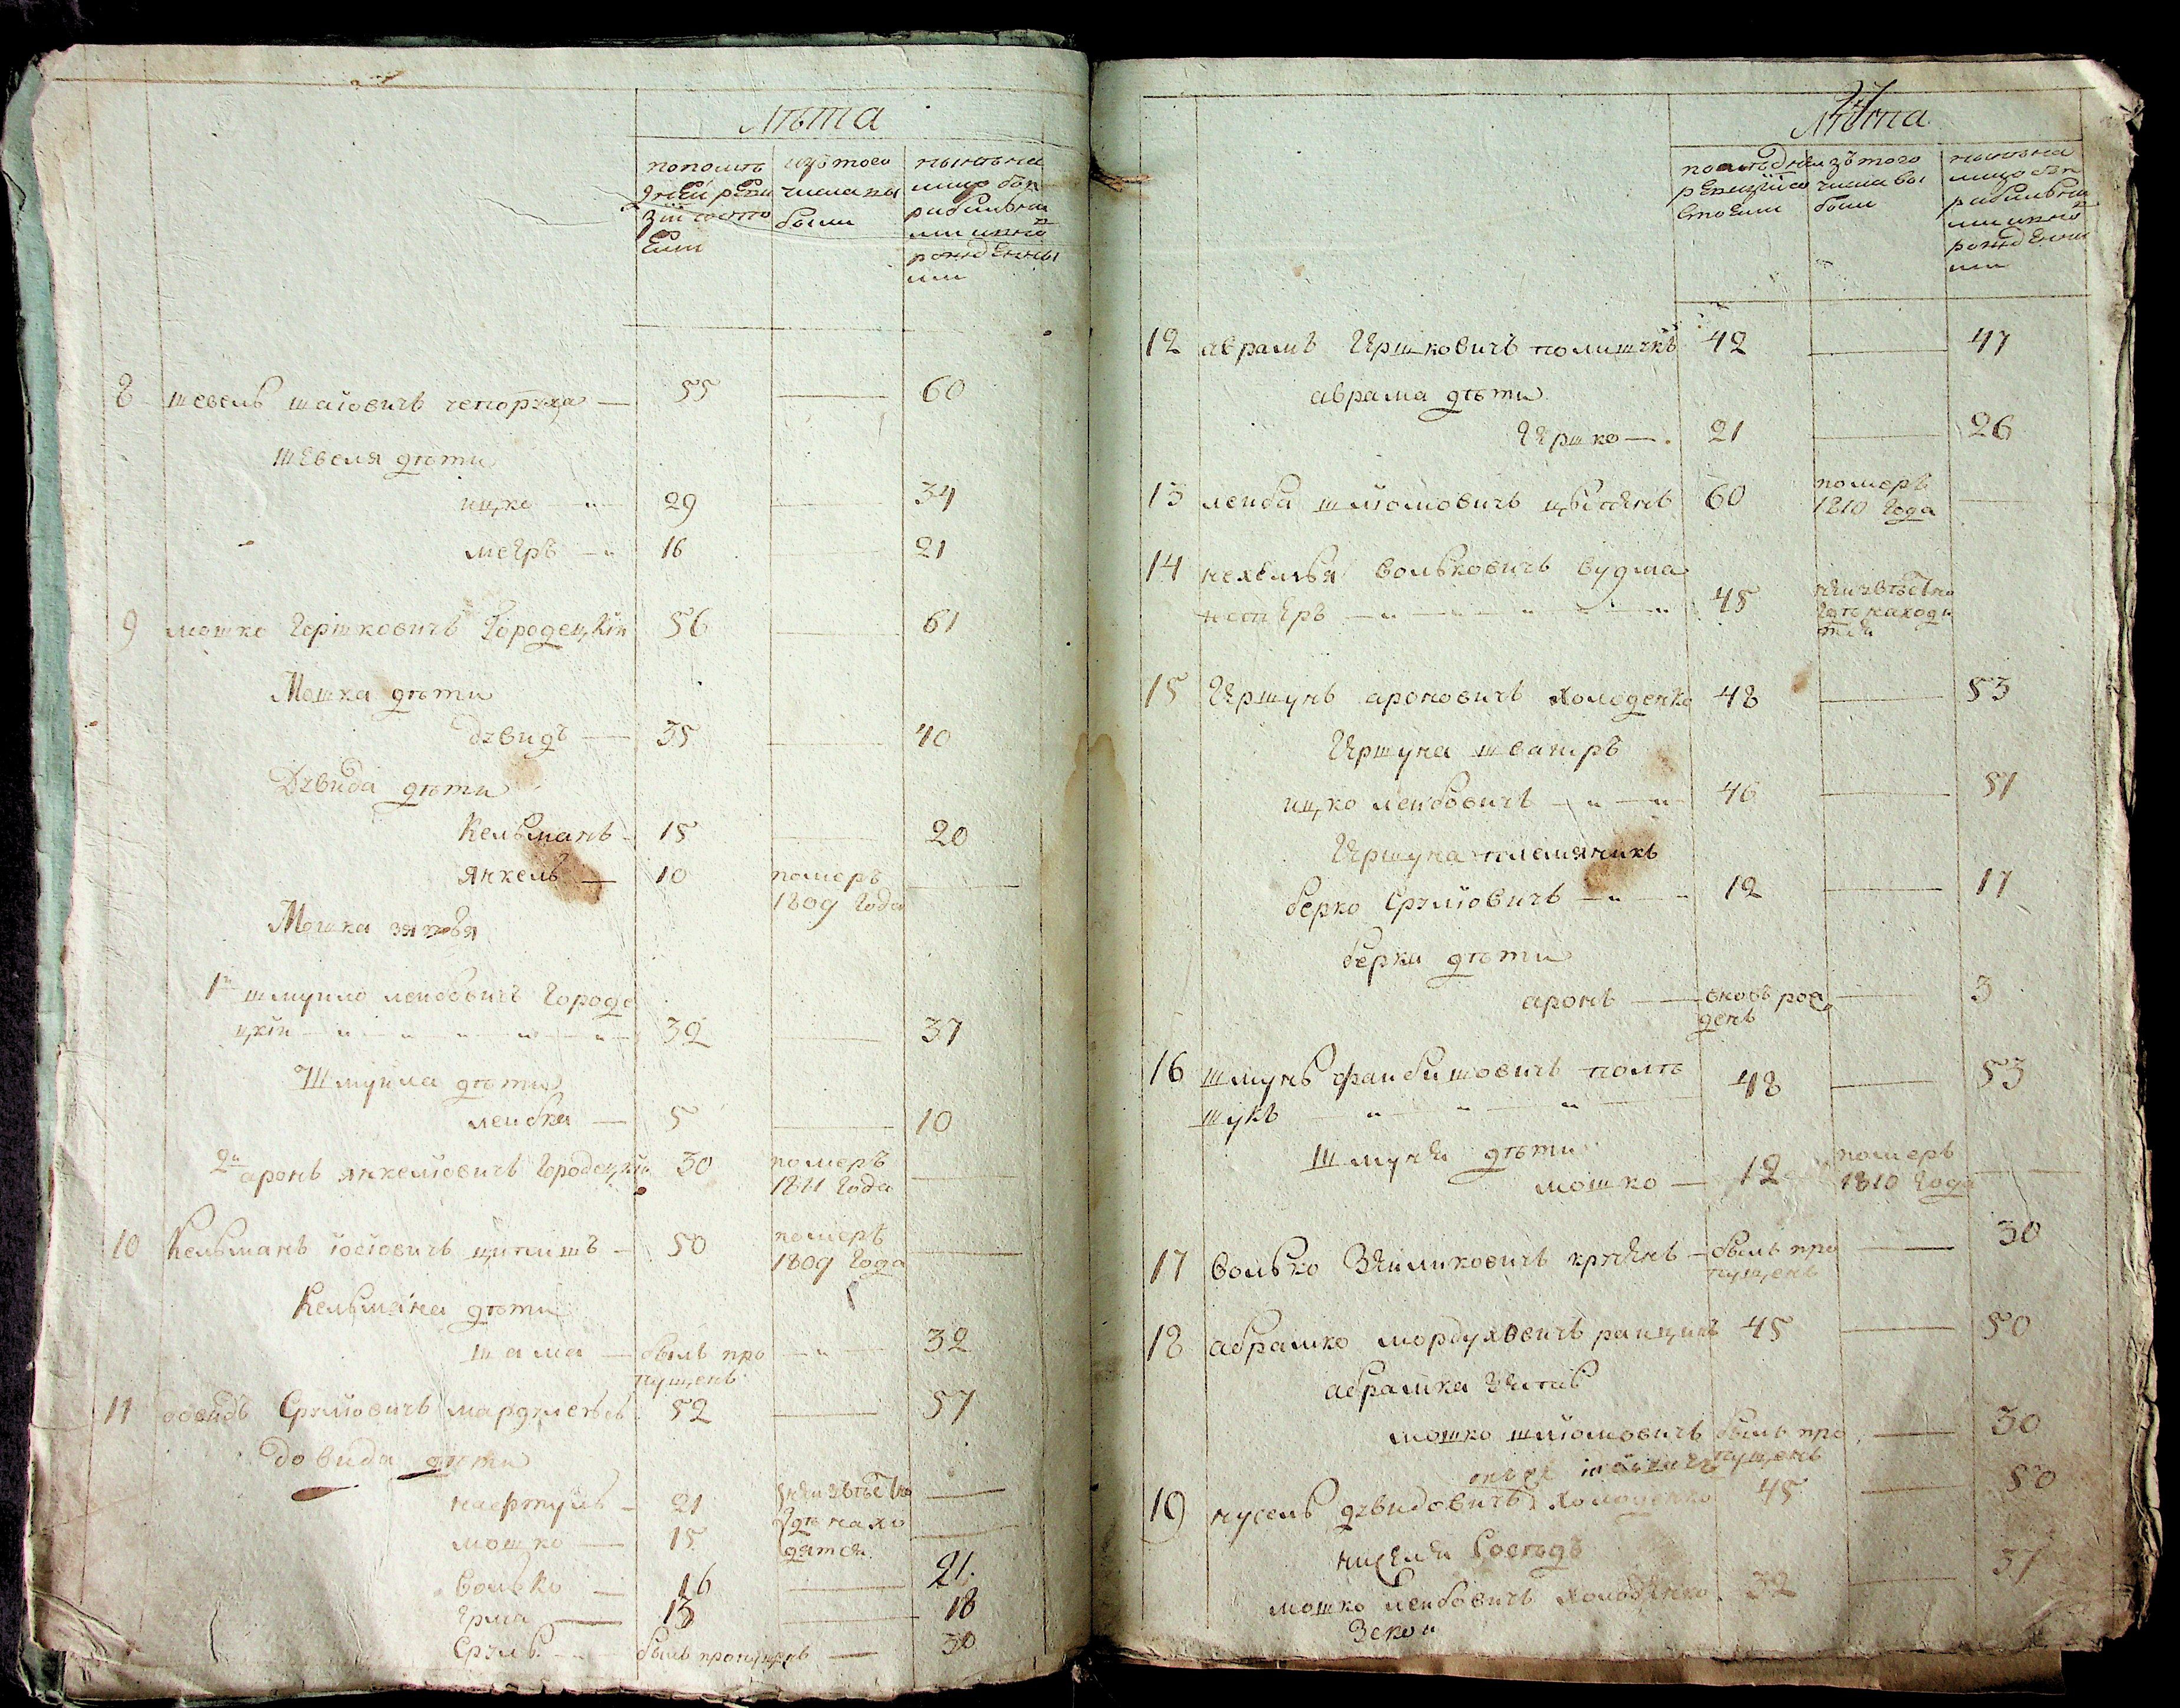 Лѣта
по послѣ
дней реви
зіи состо
яли
изъ того
числа вы
были
нынѣ на
лицо съ
ми и ново
рожденны
ми
8 шевель шаіовичъ чепоруха — 55 — 60
шевеля дѣти
ицко — 29 — 34
меeръ — 16 — 21
9 мошко Гершковичъ Городецкій 56 — 61
Мошка дѣти
дэвидъ — 35 — 40
Дэвида дѣти
Кельманъ — 15 — 20
Янкель — 10 померъ —
1809 Года
Мошка зятья
1й шмуило лейбовичъ Городе
цкій — 32 — 37
Шмуила дѣти
лейбка — 5 — 10
2й аронъ янкеліовичъ Городецкій 30 померъ —
1811 Года
10 Кельманъ іосіовичъ — 50 померъ —
1809 Года
Кельмана дѣти
шама — былъ про — 32
пущенъ
11 Сруліовичъ 52 — 57
довида дѣти
21 неизвѣстно —
мошко — 15 гдѣ нахо —
дятся
волько — 16 — 21
13 — 18
Сруль — былъ пропущенъ — 30
Лѣта
по послѣдней
ревизіи со
стояли
изъ того
числа вы
были
нынѣ на
лицо съ
ми и ново
рожденны
ми
12 аврамъ Иршковичъ 42 — 47
аврама дѣти
Иршко — 21 — 26
13 лейба шліомовичъ 60 померъ —
1810 Года
14 вольковичъ
45 неизвѣстно
гдѣ находи
тся
15 Иршунъ ароновичъ холоденко 48 — 53
Иршуна швагръ
ицко лейбовичъ — 46 — 51
Иршуна племяникъ
берко Сруліовичъ — 12 — 17
берки дѣти
аронъ — вновь рож — 3
денъ
16 шмунь файбишовичъ полѣ
щукъ — 48 — 53
Шмуня дѣти
мошко — 12 померъ —
1810 Года
17 волько — былъ про — 30
пущенъ
18 абрамко мордуховичъ 45 — 50
абрамка зять
мошко шліомовичъ былъ про — 30
пущенъ
19 нусель дэвидовичъ холоденко 45 — 50
мошко лейбовичъ холоденко 32 — 37